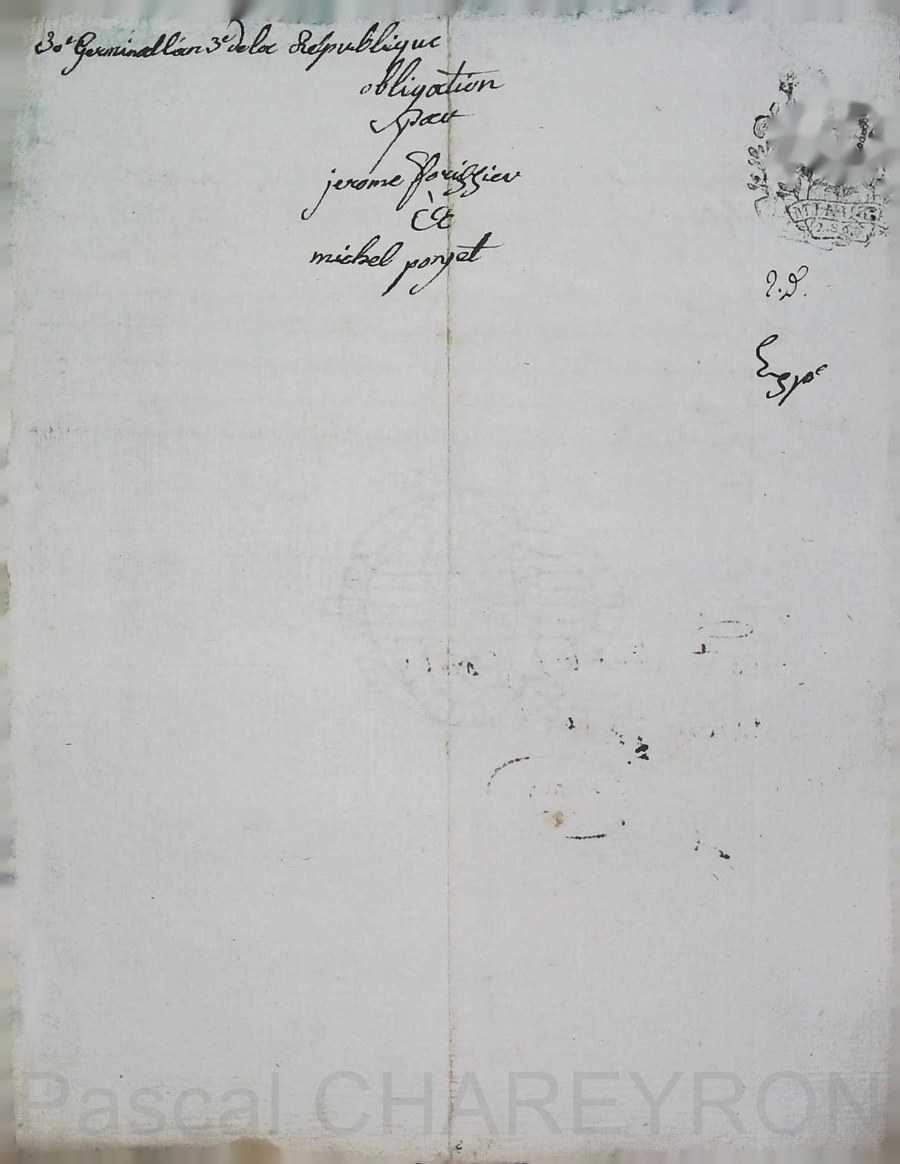 30e Germinal l'an 3e de la Republique
obligation
pour
jerome
Et
michel ponset
2.S.
Exp.e
Pascal CHAREYRON